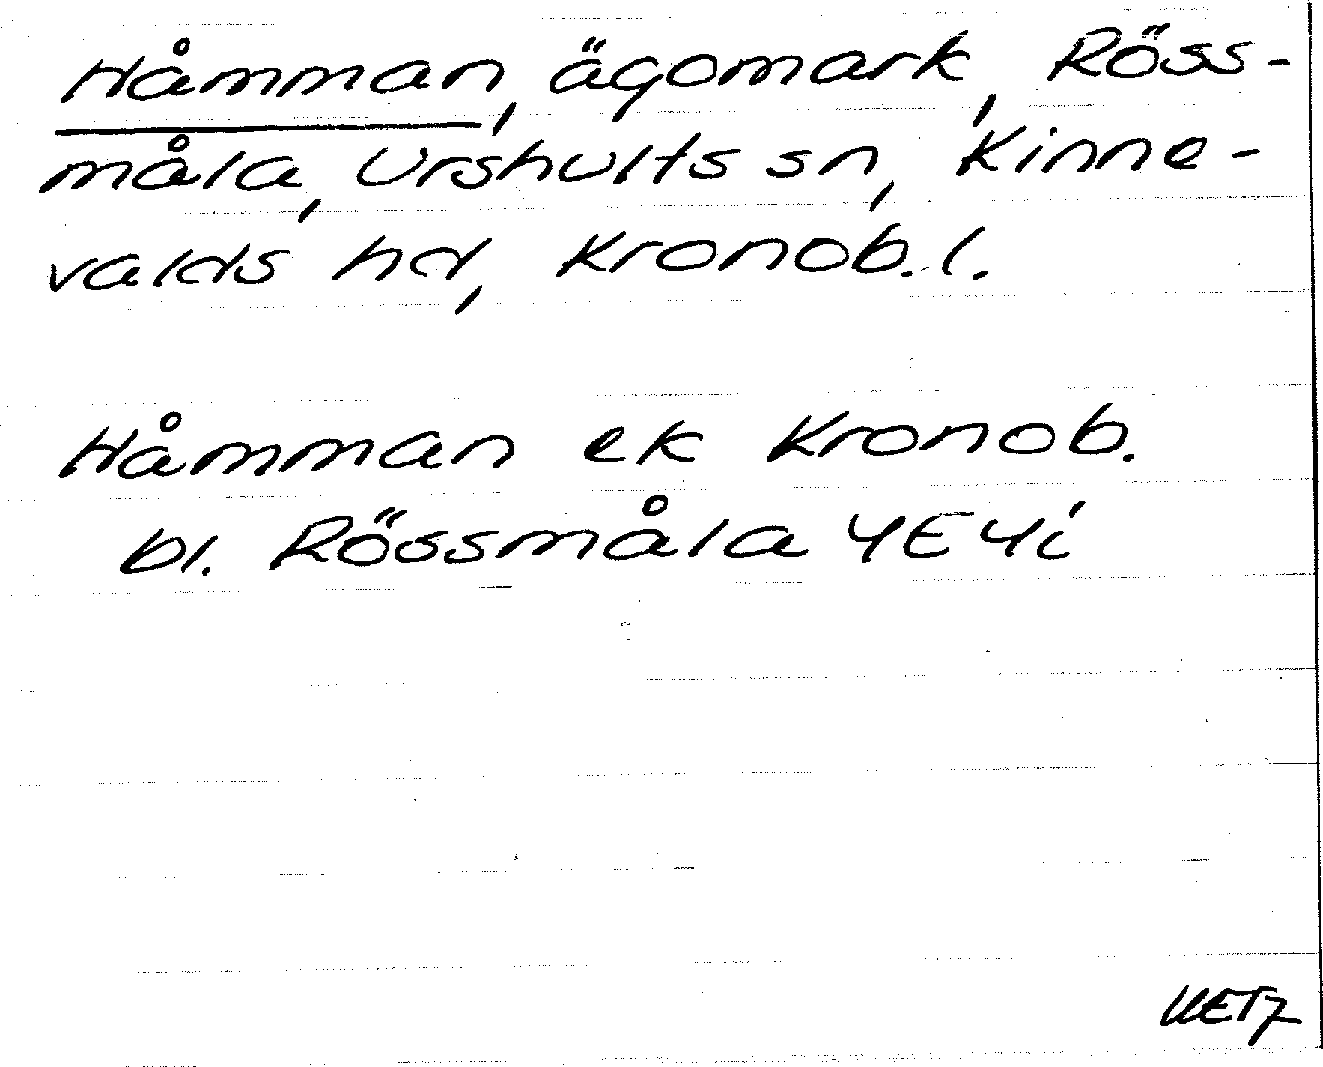 Håmman, ägomark, Röss-
måla, Urshults sn, Kinne-
valds hd, Kronob. l.
Håmman ek Kronob.
bl. Rössmåla 4E4i